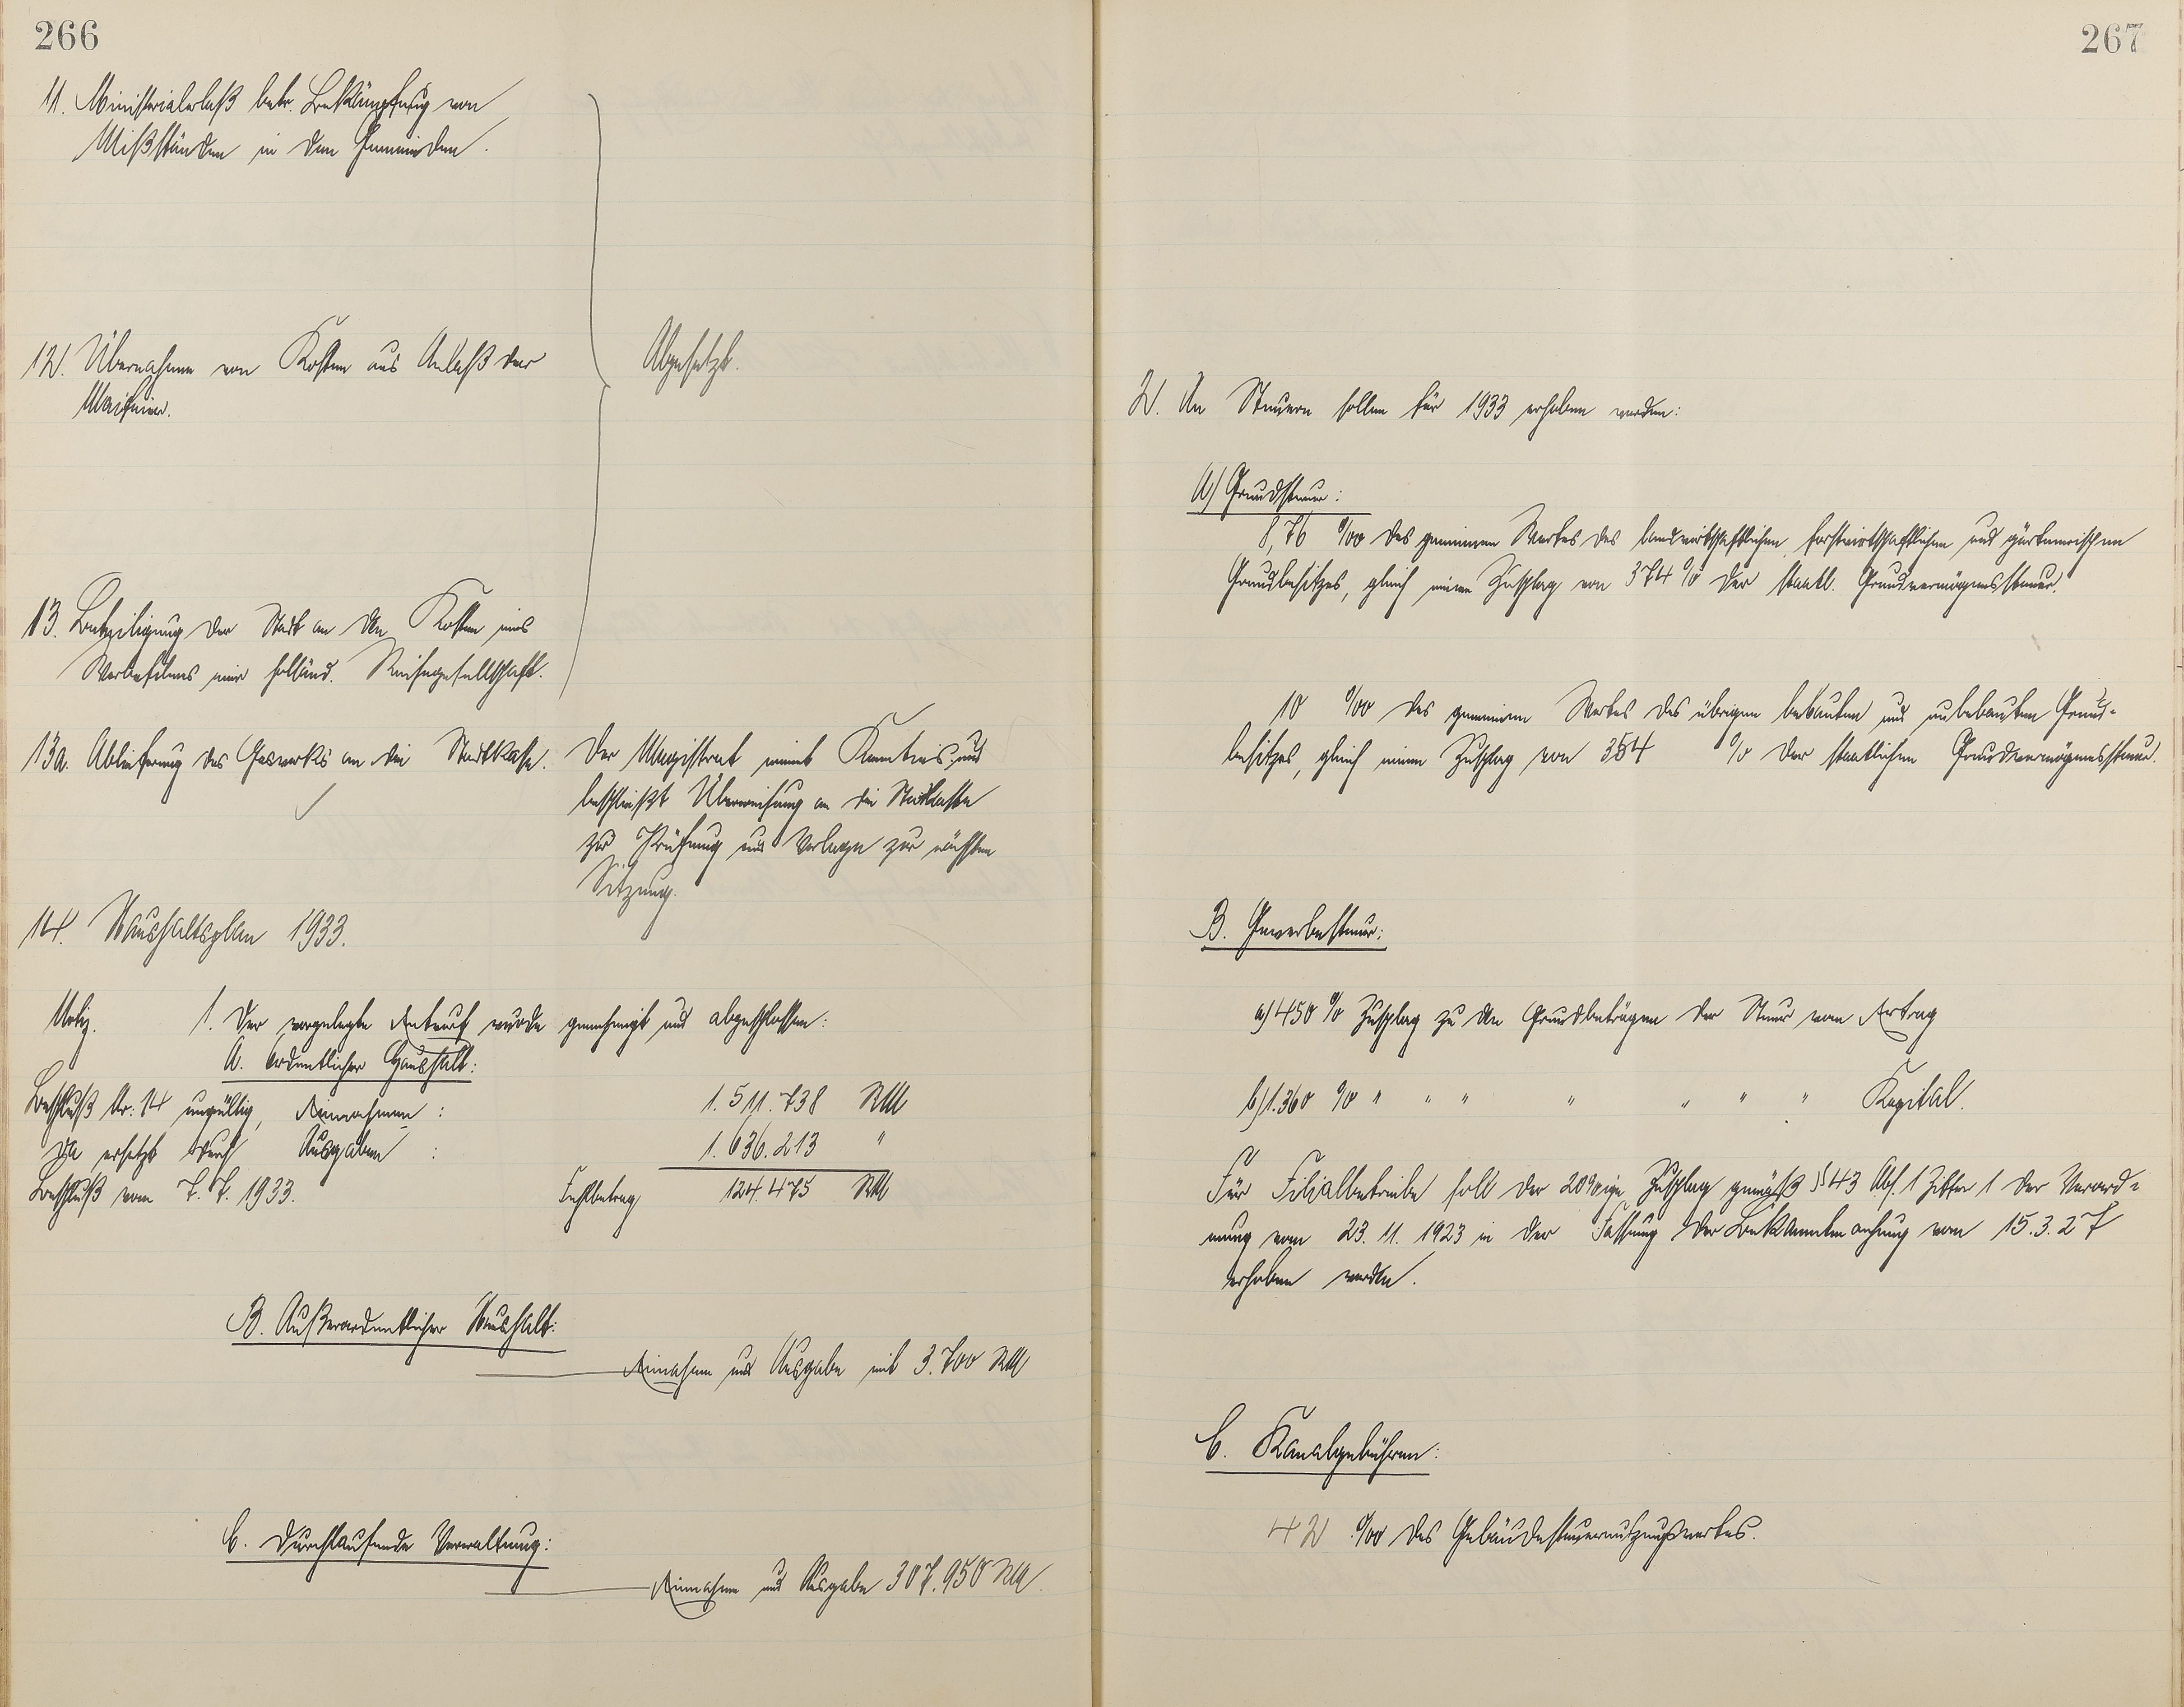 266
11. Ministerialerlaß betr. Bekämpfung von
Mißständen in den Gemeinden.
12. Übernahme von Kosten aus Anlaß der
Maifeier.
Abgesetzt.
13. Beteiligung der Stadt an den Kosten eines
Werbefilmes einer holländ. Reisegesellschaft.
13a. Ablieferung des Gaswerks an die Stadtkasse.
Der Magistrat nimmt Kenntnis und
beschließt Überweisung an die Stadtkasse
zur Prüfung und Vorlage zur nächsten
Sitzung.
14. Haushaltsplan 1933.
Notiz.
Beschluß Nr. 14 ungültig,
da ersetzt durch
Beschluß vom 7.7.1933.
1. Der vorgelegte Entwurf wurde genehmigt und abgeschlossen:
A. Ordentlicher Haushalt:
Einnahmen : 1.511.738 RM
Ausgaben : 1.636.213 "
Fehlbetrag 124.475 RM
B. Außerordentlicher Haushalt:
Einnahme und Ausgabe mit 3.700 RM
C. Durchlaufende Verwaltung:
Einnahme und Ausgabe 307.950 RM.
267
2. An Steuern sollen für 1933 erhoben werden:
A) Grundsteuer:
8,76 ‰ des gemeinen Wertes des landwirtschaftlichen, forstwirtschaftlichen und gärtnerischen
Grundbesitzes, gleich einem Zuschlag von 374 % der staatl. Grundvermögenssteuer.
10 ‰ des gemeinen Wertes des übrigen bebauten und unbebauten Grund-
besitzes, gleich einem Zuschlag von 354 % der staatlichen Grundvermögenssteuer.
B. Gewerbesteuer:
a) 450 % Zuschlag zu den Grundbeträgen der Steuer vom Ertrag
b) 1.360 % " " " " " " " Kapital.
Für Filialbetriebe soll der 20%ige Zuschlag gemäß § 43 Abs. 1 Ziffer 1 der Verord-
nung vom 23.11.1923 in der Fassung der Bekanntmachung vom 15.3.27
erhoben werden.
C. Kanalgebühren:
42 ‰ des Gebäudesteuernutzungswertes.